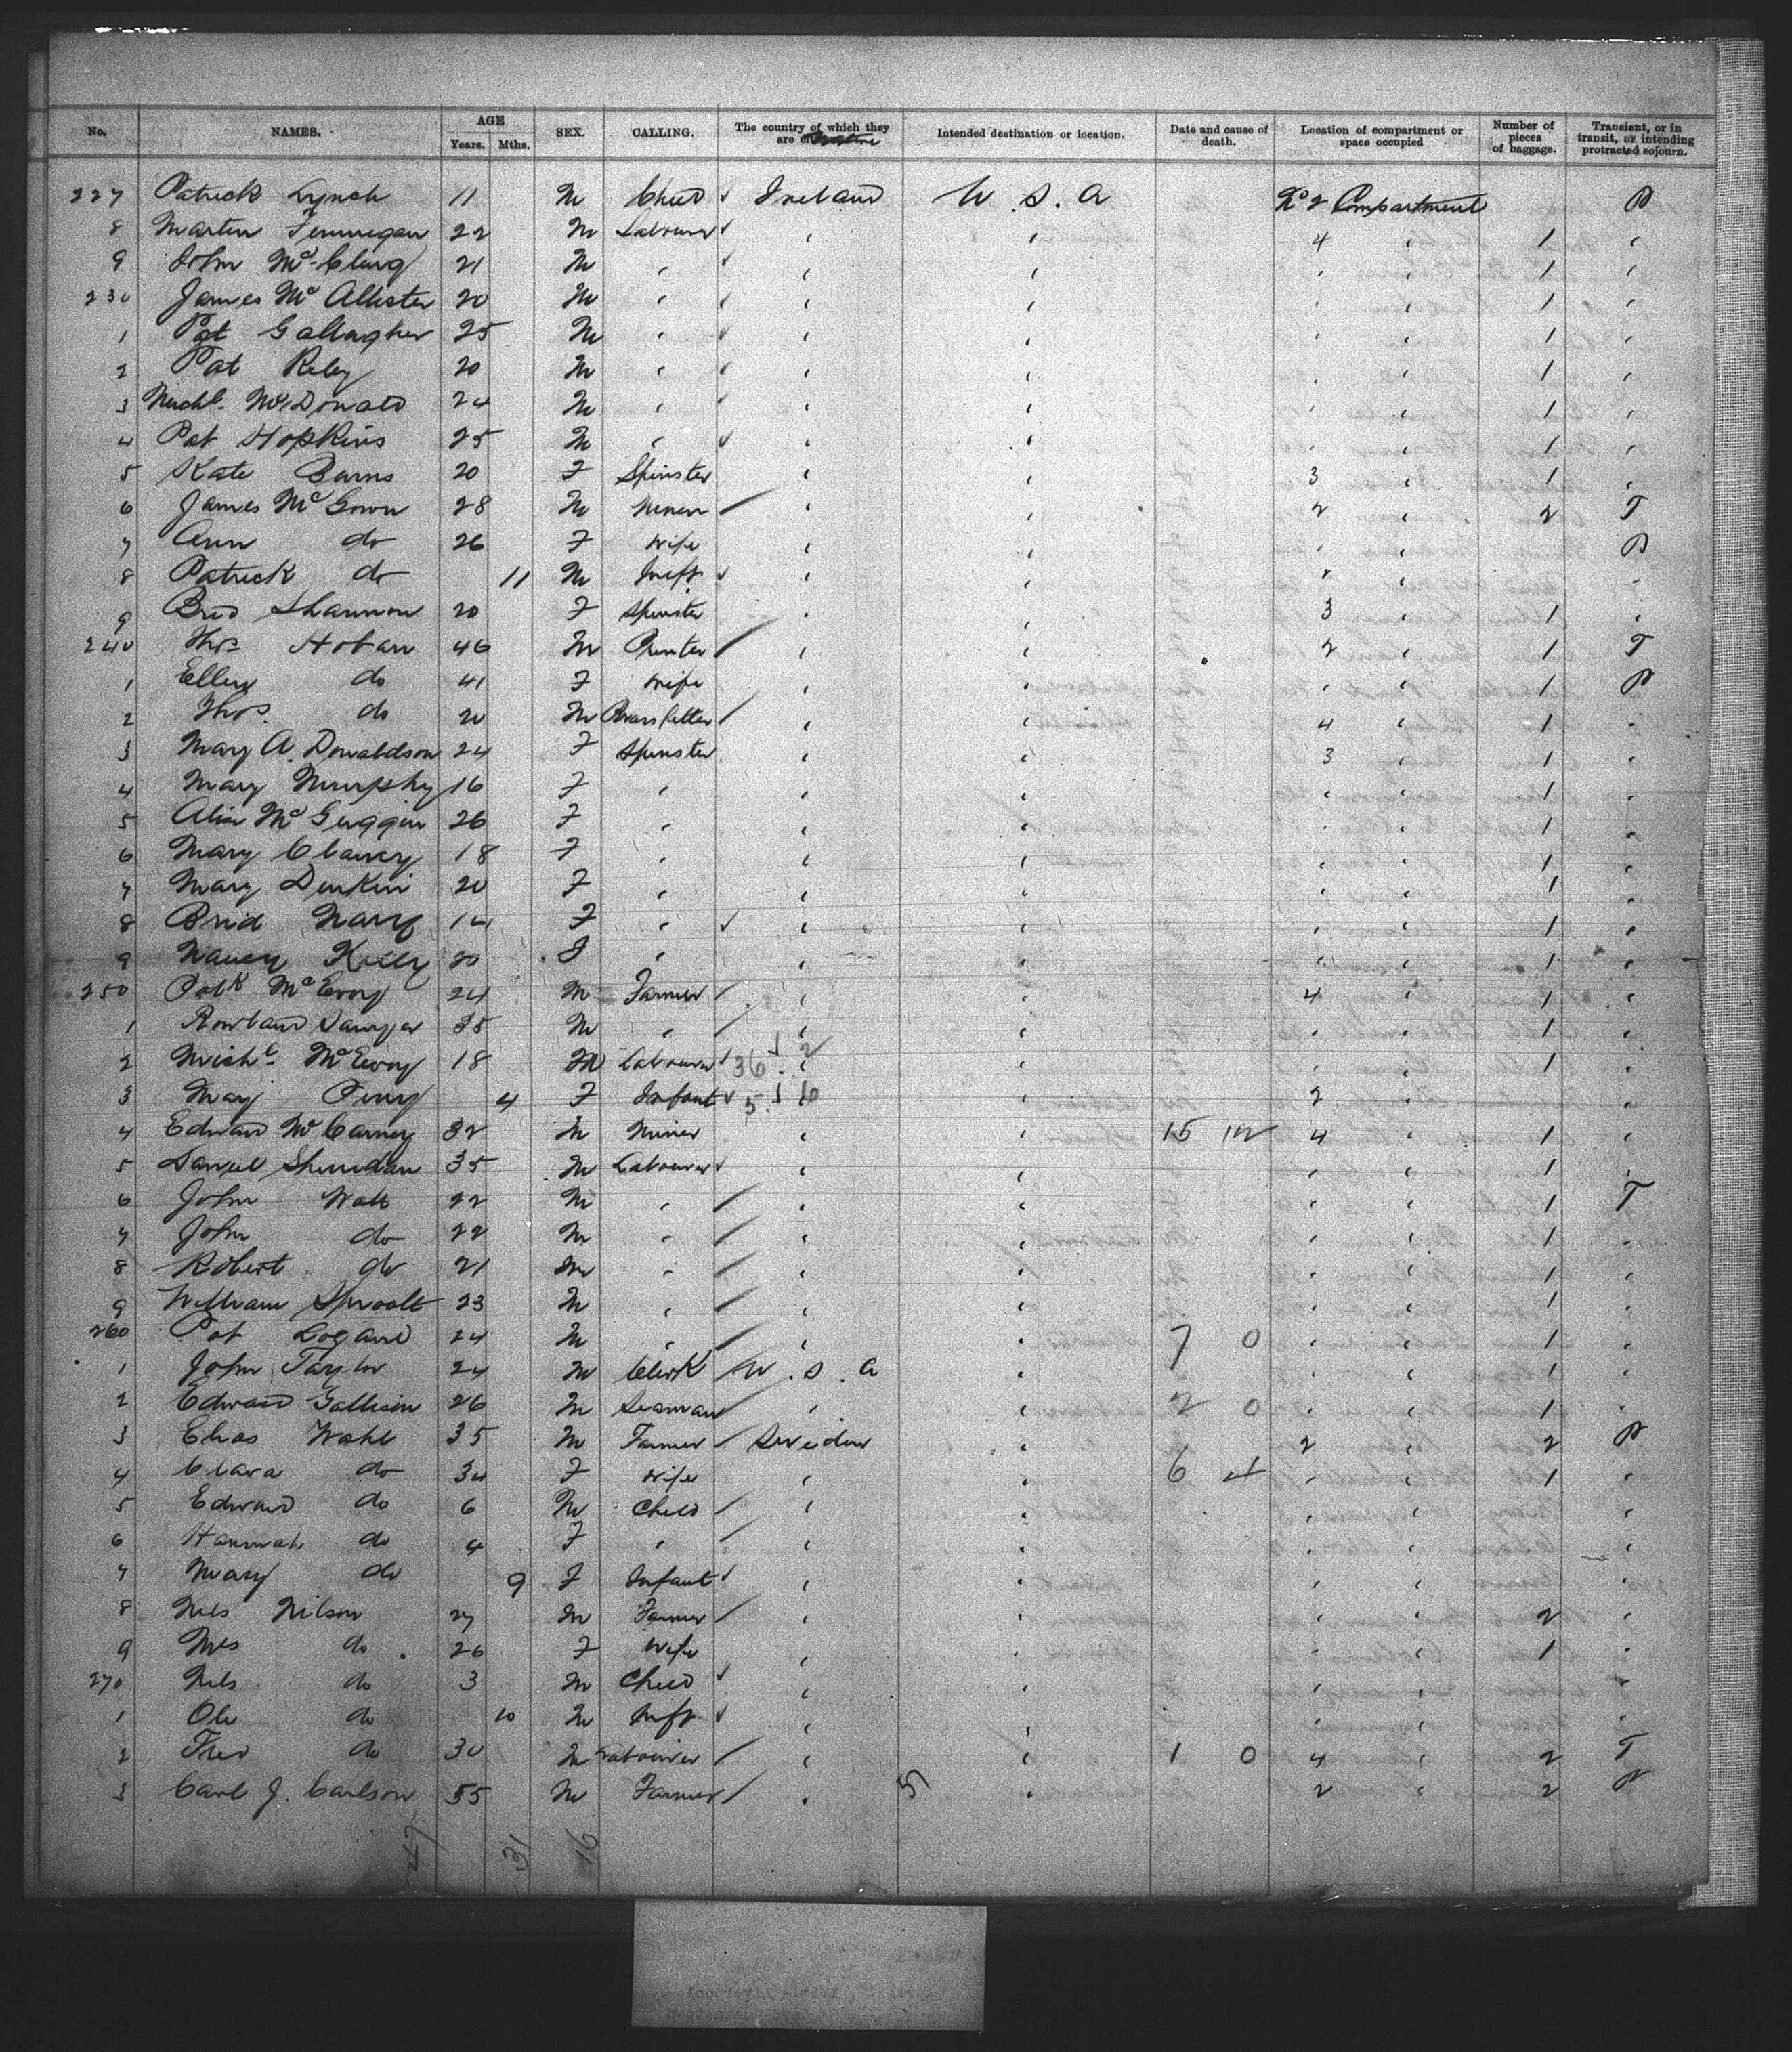 No. NAMES. AGE Years. Mths. SEX. CALLING. The country of which they are Intended destination or location. Date and cause of death. Location of compartment or space occupied Number of pieces of baggage. Transient, or in transit, or intending protracted sojourn.
227 Patrick Lynch 11 M Child Ireland U.S.A No 2 Compartment P
8 Martin Finnegan 22 M Labourer " " 4 " 1 "
9 John McClurg 21 M " " " " " 1 "
230 James McAllister 20 M " " " " " 1 "
1 Pat Gallagher 25 M " " " " " 1 "
2 Pat Reley 20 M " " " " " 1 "
3 Michl. McDonald 24 M " " " " " 1 "
4 Pat Hopkins 25 M " " " " " 1 "
5 Kate Burns 20 F Spinster " " 3 " 1 "
6 James McGown 28 M " " 2 " 2 T
7 Ann do 26 F Wife " " " " P
8 Patrick do 11 M Inft " " " " "
9 Brid Shannon 20 F Spinster " " 3 " 1 "
240 Thos Hoban 46 M Printer " " 2 " 1 T
1 Ellen do 41 F Wife " " " " 1 P
2 Thos. do 20 M Brassfitter " " 4 " 1 "
3 Mary A. Donaldson 24 F Spinster " " 3 " 1 "
4 Mary Murphy 16 F " " " " " 1 "
5 McGuggin 26 F " " " " " 1 "
6 Mary Clancy 18 F " " " " " 1 "
7 Mary Durkin 20 F " " " " " 1 "
8 Brid Navy 14 F " " " " " 1 "
9 Nancy Kelly 20 F " " " " " 1 "
250 Patk McEvoy 24 M Farmer " " 4 " 1 "
1 Rowland Sawyer 35 M " " " " " 1 "
2 Michl. McEvoy 18 M Labourer 36 2 " " " " 1 "
3 May Perry 4 F Infant 5 10 " 2 " "
4 Edward McCarney 32 M Miner " " 15 12 4 " 1 "
5 Daniel Sheridan 35 M Labourer " " " " 1 "
6 John Watt 22 M " " " " " 1 T
7 John do 22 M " " " " " 1 "
8 Robert do 21 M " " " " " 1 "
9 William Sproolt 23 M " " " " " 1 "
260 Pat Logan 24 M " " " 7 0 " " 1 "
1 John Taylor 24 M Clerk U.S.A " " " 1 "
2 Edward 26 M Seaman " " 2 0 " " 1 "
3 Elias Wahl 35 M Farmer Sweden " 2 " 2 P
4 Clara do 34 F Wife " " 6 4 " " 1 "
5 Edward do 6 M Child " " " " "
6 Hannah do 4 F " " " " " "
7 Mary do 9 F Infant " " " " "
8 Nels Nilson 27 M Farmer " " " " 2 "
9 Mrs do 26 F Wife " " " " 1 "
270 Nels do 3 M Child " " " " "
1 Ole do 10 M Inft " " " " "
2 do 30 M Labourer " " 1 0 4 " 2 T
3 Carl J. Carlson 55 M Farmer " 5 " 2 " 2 P
47 31 16